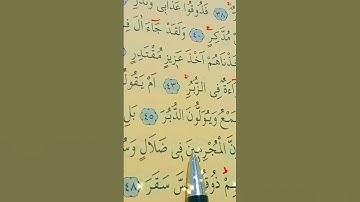 ٣٨ فَذُوقُوا عَذَابِى وَنُذُرِ
مُدَّكِرٍ ٤٠ وَلَقَدْ جَاءَ اٰلَ فِ
خَذْنَاهُمْ اَخْذَ عَزِيزٍ مُقْتَدِرٍ
اءَةٌ فِى الزُّبُرِ ٤٣ اَمْ يَقُولُ
مْعُ وَيُوَلُّونَ الدُّبُرَ ٤٥ بَلِ
نَّ الْمُجْرِمِينَ فِى ضَلَالٍ وَسُ
مْ ذُوقُ سَّ سَقَرَ ٤٨